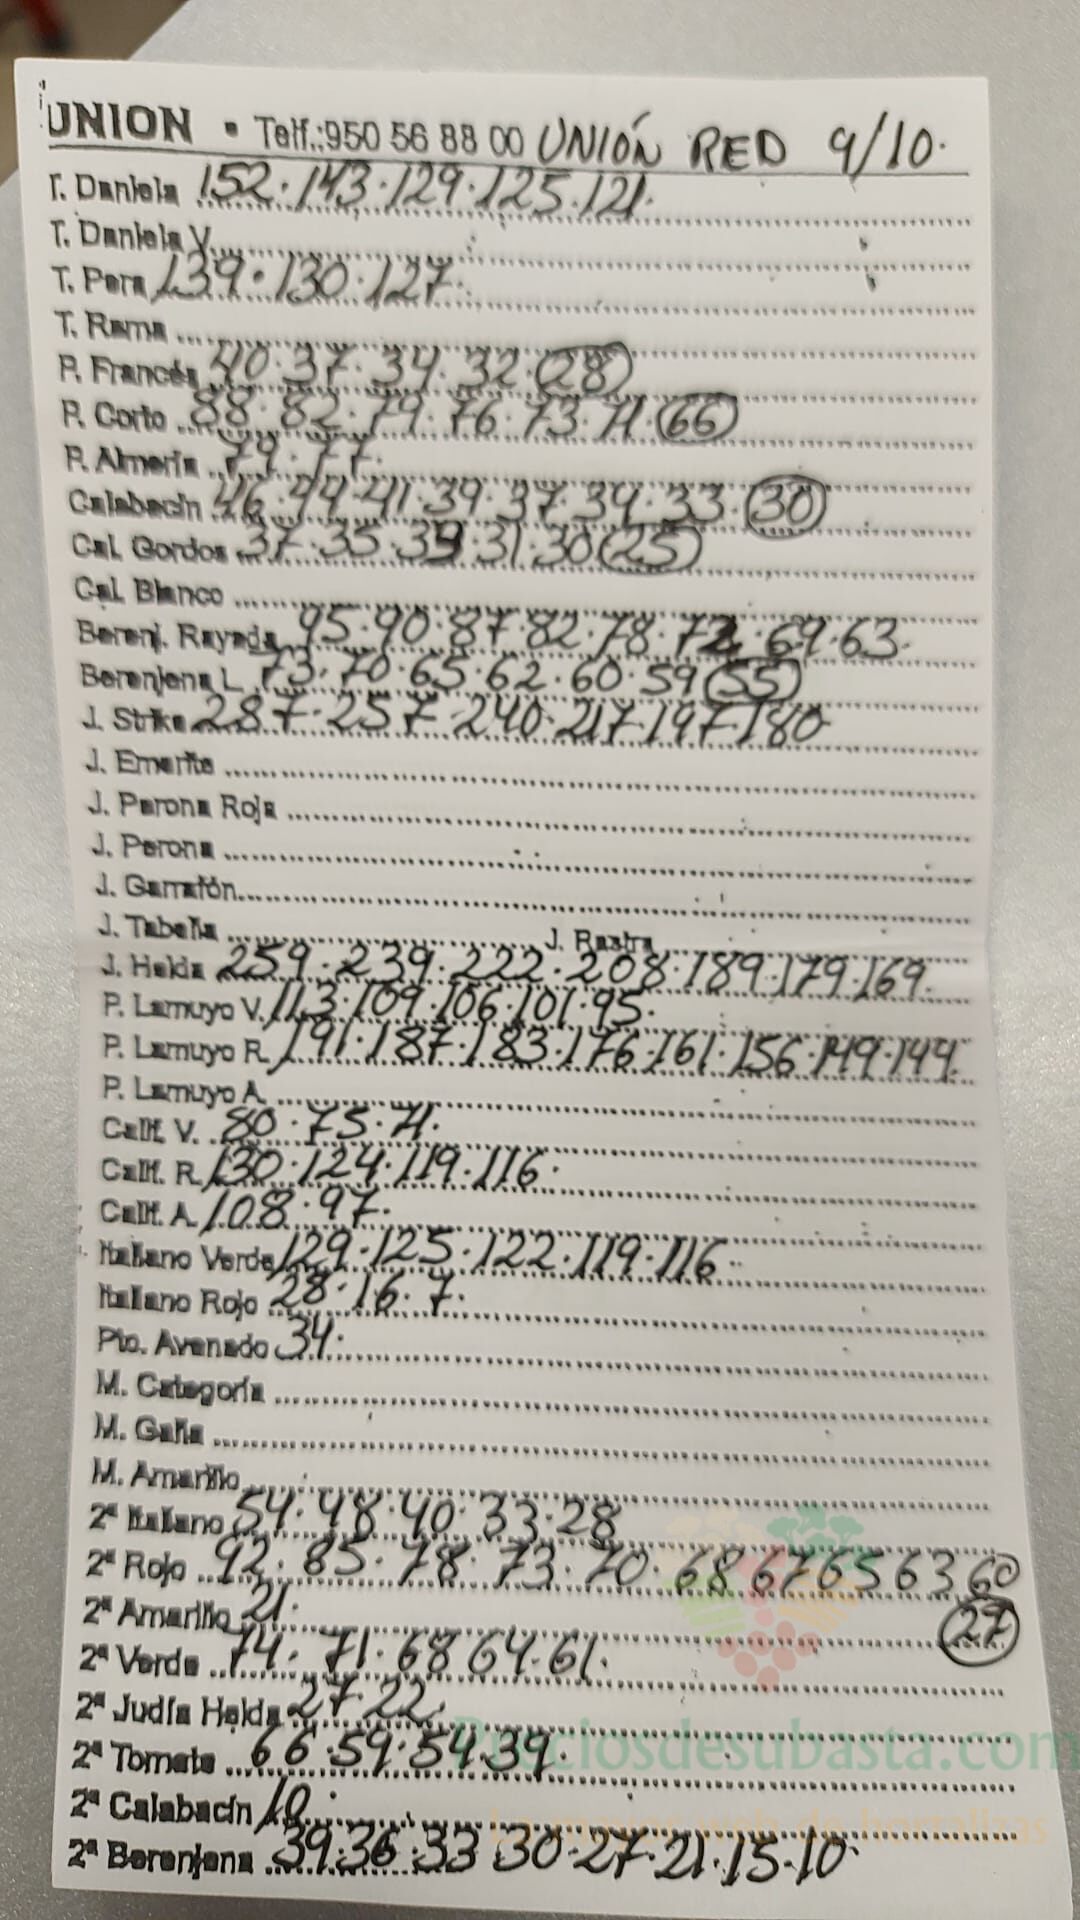 UNION • Telf.:950 56 88 00 UNIÓN RED 9/10.
T. Daniela 152.143.129.125.121.
T. Daniela V.
T. Pera 139.130.127.
T. Rama
P. Francés 40.37.34.32.28
P. Corto 88.82.79.76.73.71.66
P. Almería 79.77.
Calabacín 46.44.41.39.37.34.33.30
Cal. Gordos 37.35.31.30 25
Cal. Blanco
Berenj. Rayada 95.90.87.82.78.69.63.
Berenjena L. 73.70.65.62.60.59 55
J. Strike 287.257.240.217.197.180
J. Emerite
J. Perona Roja
J. Perona
J. Garrafón
J. Tabella J. Rastra
J. Helda 259.239.222.208.189.179.169.
P. Lamuyo V. 113.109.106.101.95.
P. Lamuyo R. 191.187.183.176.161.156.149.144.
P. Lamuyo A.
Calif. V. 80.75.71.
Calif. R. 130.124.119.116.
Calif. A. 108.97.
Italiano Verde 129.125.122.119.116.
Italiano Rojo 28.16.7.
Pto. Avenado 34.
M. Categoría
M. Galia
M. Amarillo
2ª Italiano 54.48.40.33.28
2ª Rojo 92.85.78.73.70.68 67 65 63 60
2ª Amarillo 21. 27
2ª Verde 74.71.68 64.61.
2ª Judía Helda 27.22.
2ª Tomate 66.59.54.39.
Preciosdesubasta.com
2ª Calabacín 10.
de hortalizas
2ª Berenjena 39.36.33 30.27.21.15.10.